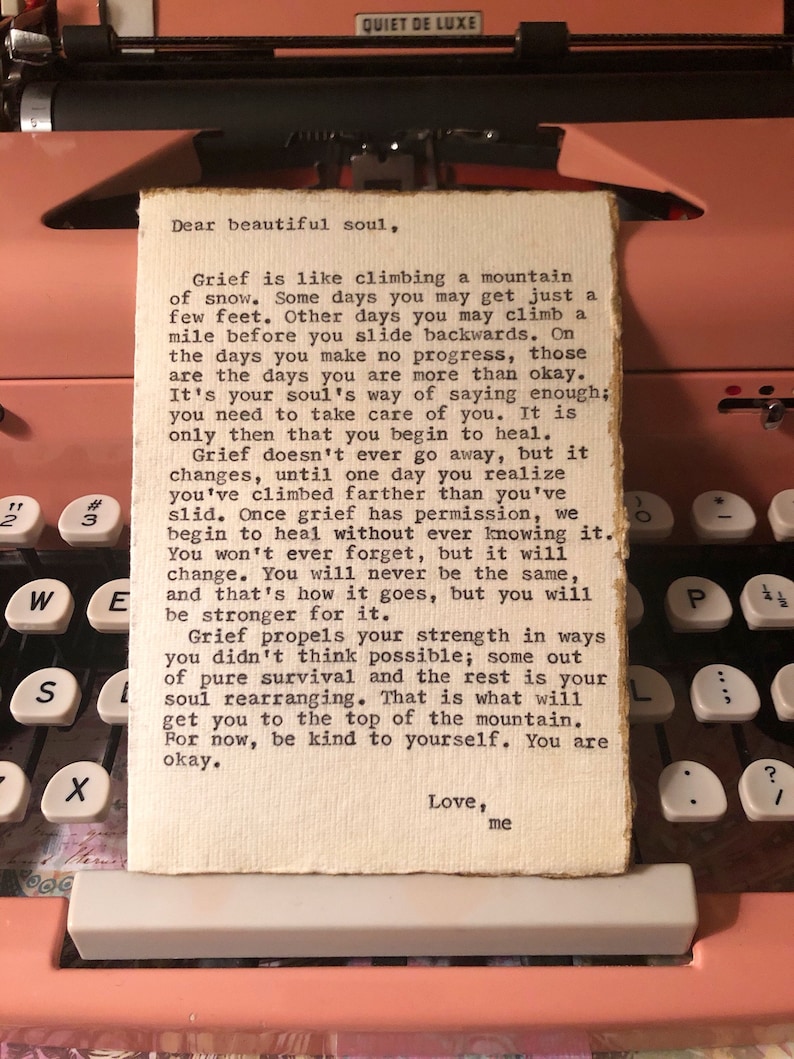 QUIET DE LUXE
Dear beautiful soul,
Grief is like climbing a mountain
of snow. Some days you may get just a
few feet. Other days you may climb a
mile before you slide backwards. On
the days you make no progress, those
are the days you are more than okay.
It's your soul's way of saying enough;
you need to take care of you. It is
only then that you begin to heal.
Grief doesn't ever go away, but it
changes, until one day you realize
you've climbed farther than you've
slid. Once grief has permission, we
begin to heal without ever knowing it.
You won't ever forget, but it will
change. You will never be the same,
and that's how it goes, but you will
be stronger for it.
Grief propels your strength in ways
you didn't think possible; some out
of pure survival and the rest is your
soul rearranging. That is what will
get you to the top of the mountain.
For now, be kind to yourself. You are
okay.
Love,
me
" 2 # 3 ) 0 * -
W E P ¼ ½
S L : ;
X . ? /